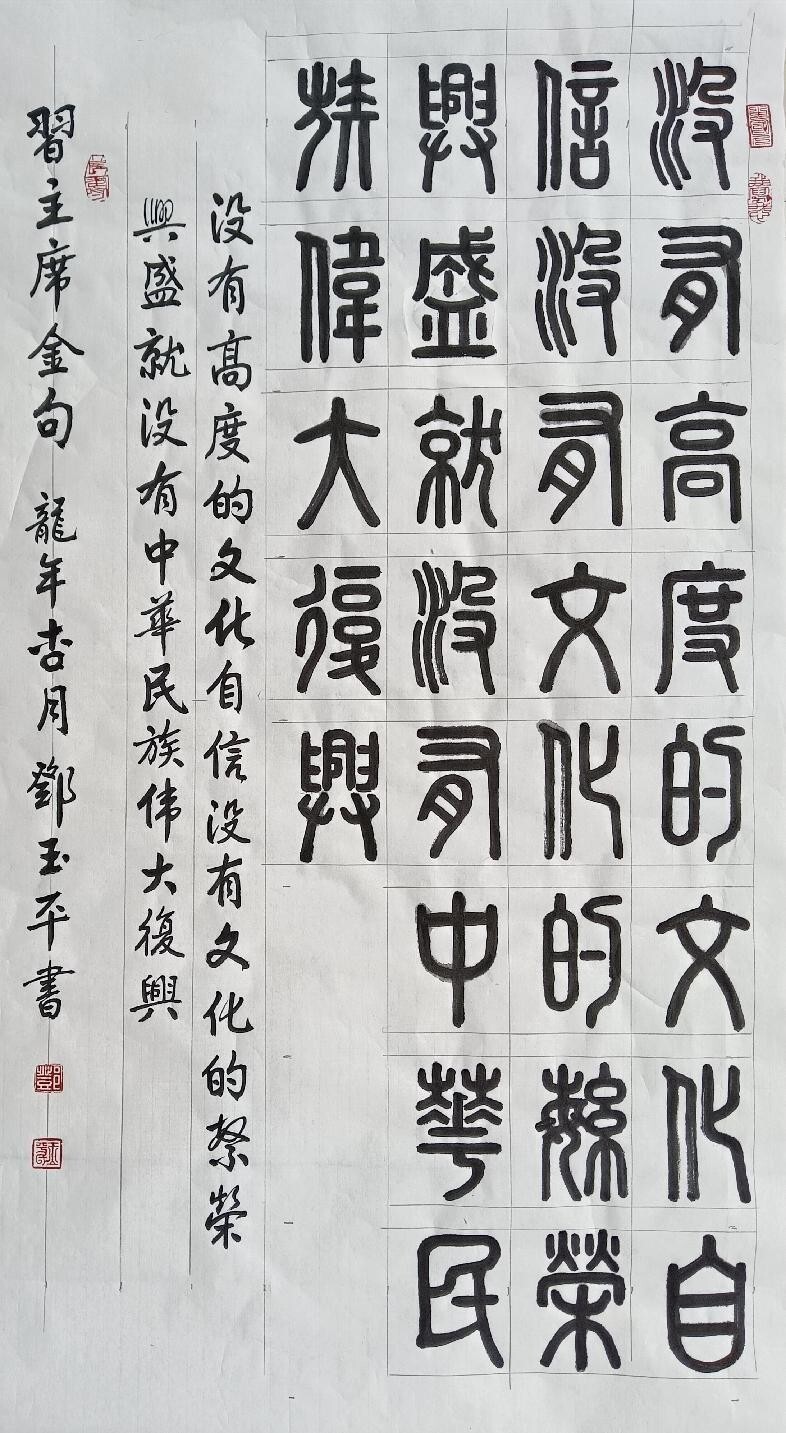 没有高度的文化自
信没有文化的繁榮
興盛就没有中華民
族偉大復興
没有高度的文化自信没有文化的繁榮
興盛就没有中華民族伟大復興
習主席金句 龍年杏月鄧玉平書